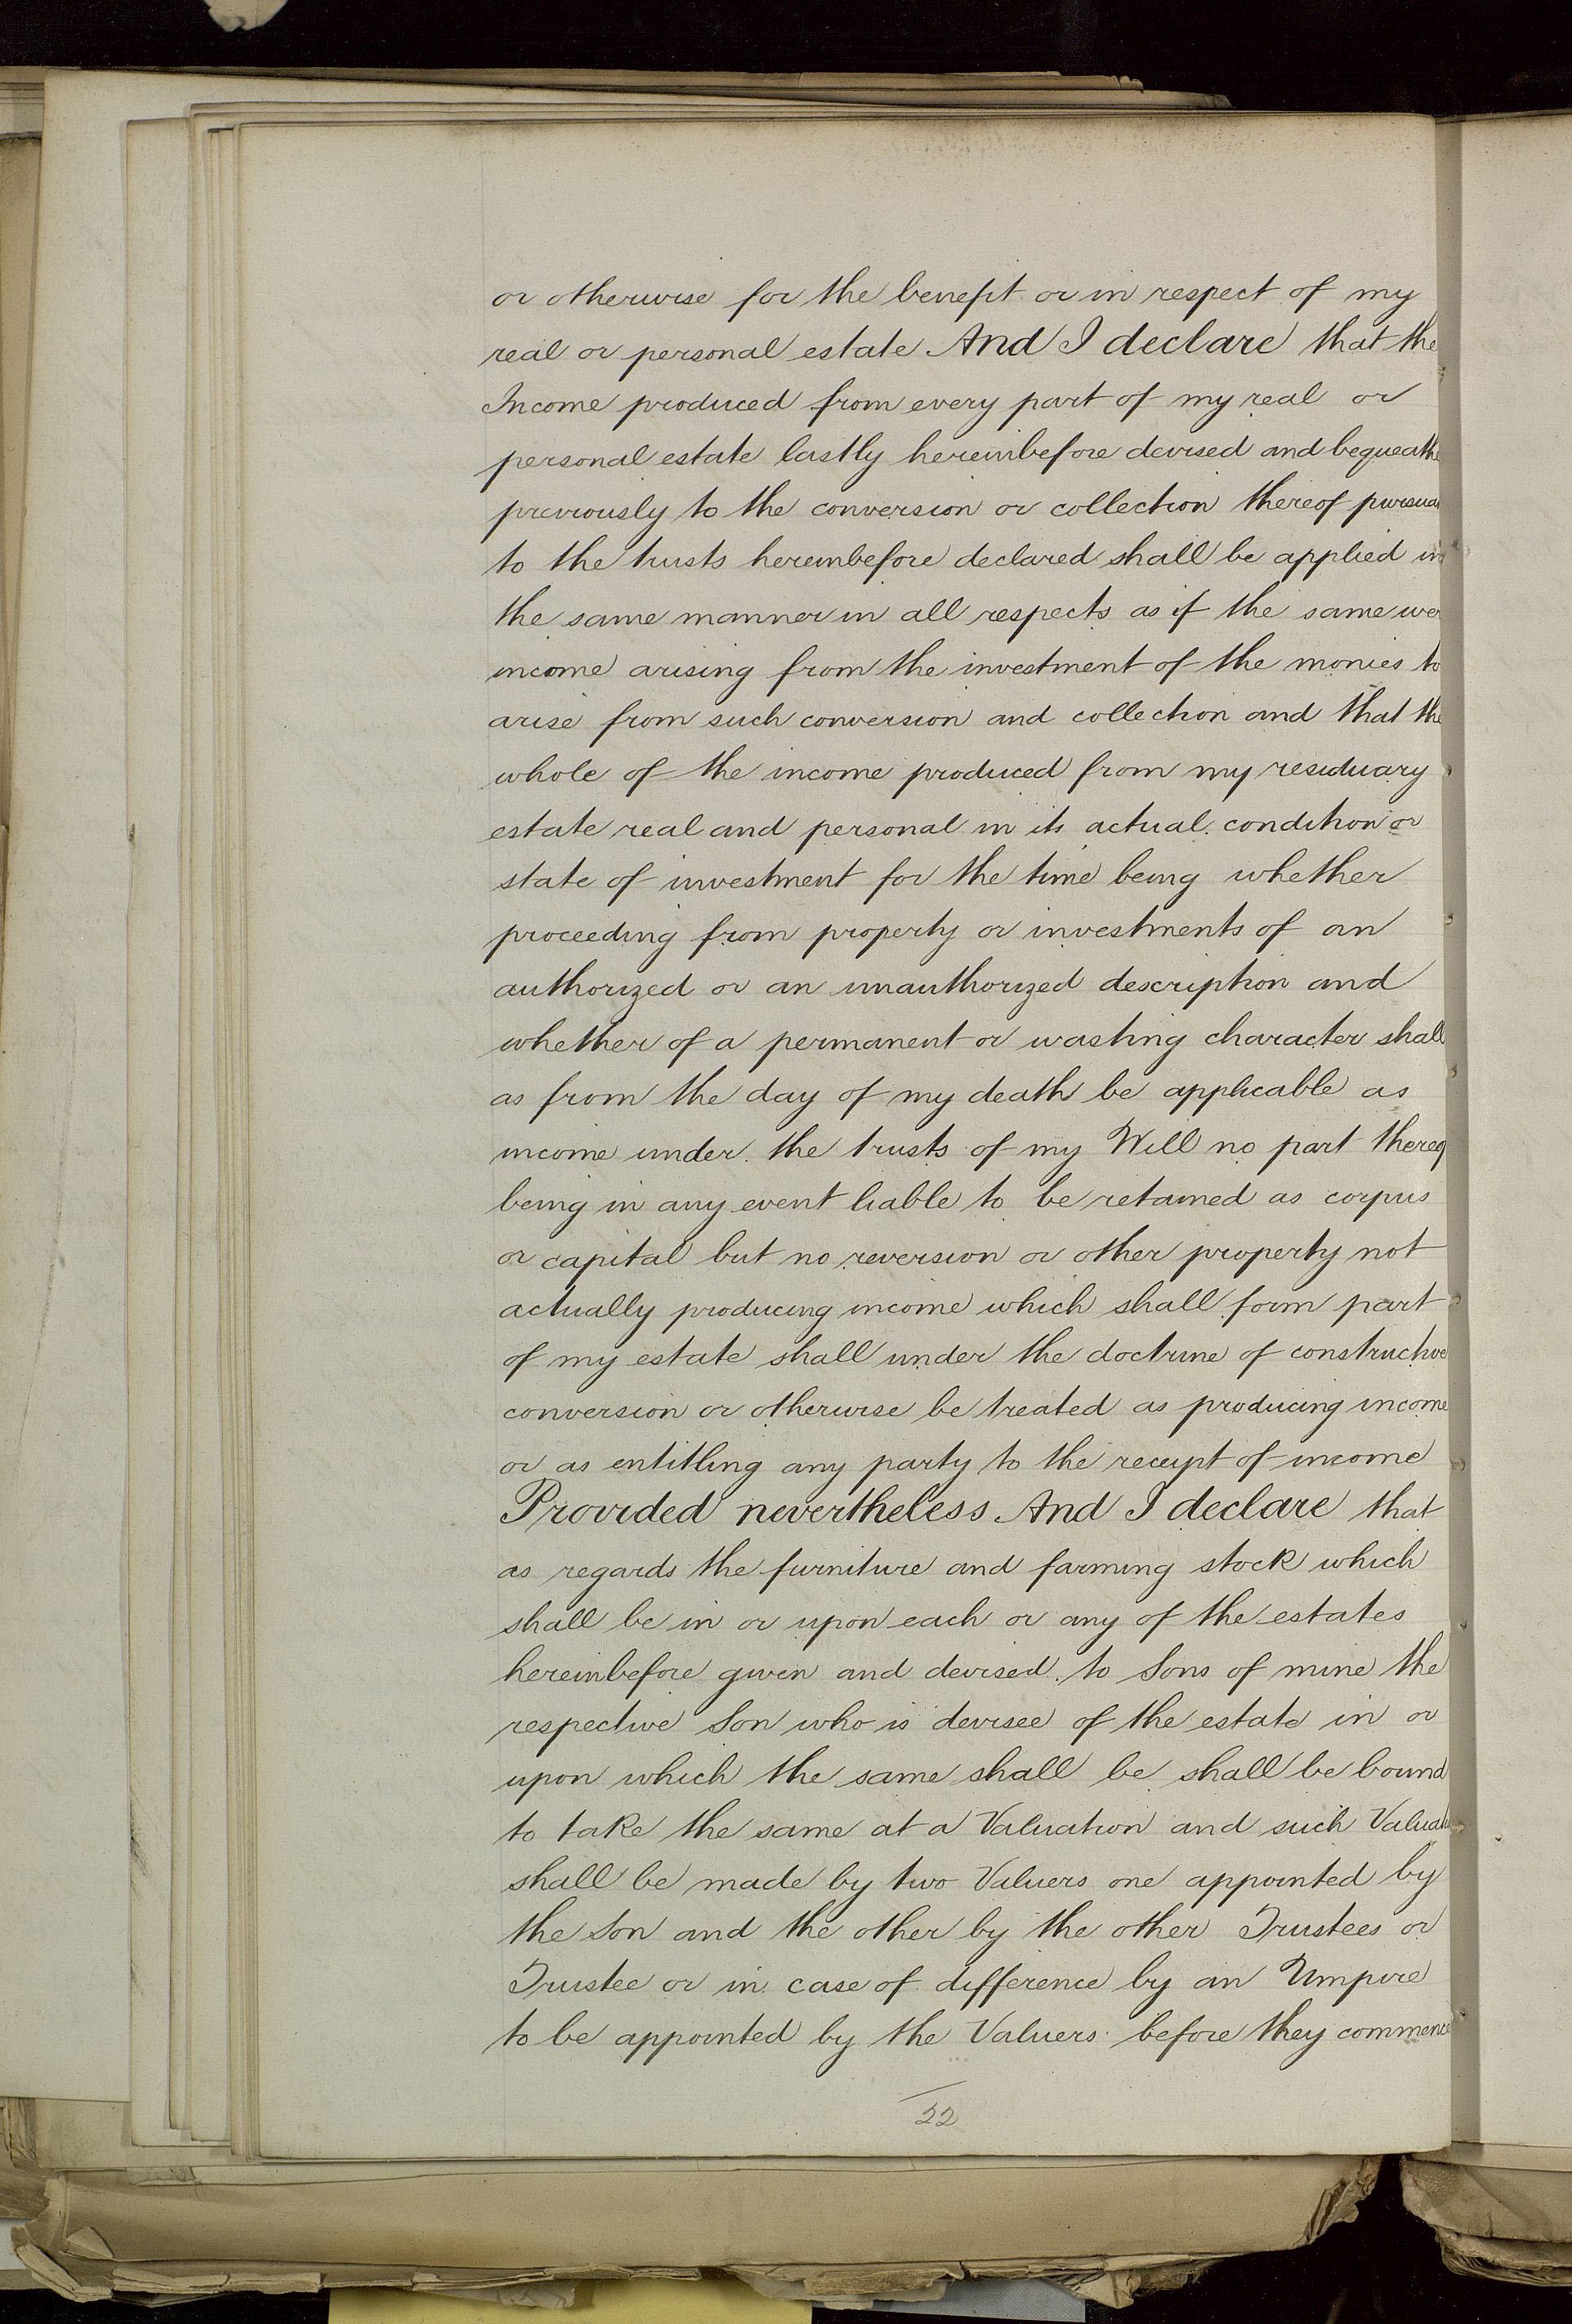 or otherwise for the benefit or in respect of my
real or personal estate And I declare that the
Income produced from every part of my real or
personal estate lastly hereinbefore devised and bequeathe
previously to the conversion or collection thereof pursua
to the trusts hereinbefore declared shall be applied in
the same manner in all respects as if the same wer
income arising from the investment of the monies to
arise from such conversion and collection and that the
whole of the income produced from my residuary
estate real and personal in its actual condition or
state of investment for the time being whether
proceeding from property or investments of an
authorized or an unauthorized description and
whether of a permanent or wasting character shall
as from the day of my death be applicable as
income under the trusts of my Will no part thereof
being in any event liable to be retained as corpus
or capital but no reversion or other property not
actually producing income which shall form part
of my estate shall under the doctrine of constructive
conversion or otherwise be treated as producing income
or as entitling any party to the receipt of income
Provided nevertheless And I declare that
as regards the furniture and farming stock which
shall be in or upon each or any of the estates
hereinbefore given and devised to Sons of mine the
respective Son who is devisee of the estate in or
upon which the same shall be shall be bound
to take the same at a Valuation and such Valuati
shall be made by two Valuers one appointed by
the Son and the other by the other Trustees or
Trustee or in case of difference by an Umpire
to be appointed by the Valuers before they commence
22